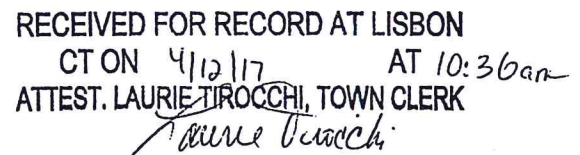 RECEIVED FOR RECORD AT LISBON
CT ON 4/12/17 AT 10:36am
ATTEST. LAURIE TIROCCHI, TOWN CLERK
Laurie Tirocchi